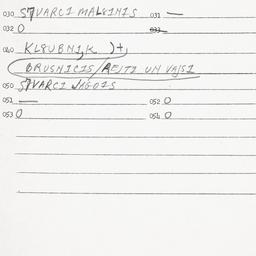 030 S7VARCI MALVINIS 031 —
032 0 033
040 KLBUBNIK )+,
BRUSNICIS/AEITI UN VAJSI
050 S7VARCI JAGOIS
051 — 052 0
053 0 054 0